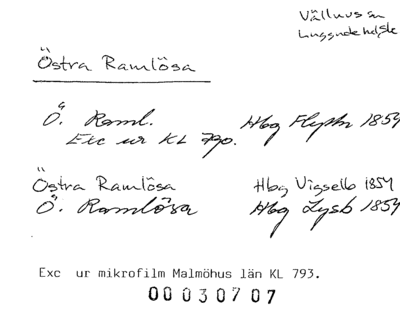 Välluvs sn
Luggude hd
Östra Ramlösa
Ö. Raml. Hbg Flyttn 1854
Exc ur KL 790.
Östra Ramlösa Hbg Vigselb 1854
Ö. Ramlösa Hbg Lysb 1854
Exc ur mikrofilm Malmöhus län KL 793.
00030707